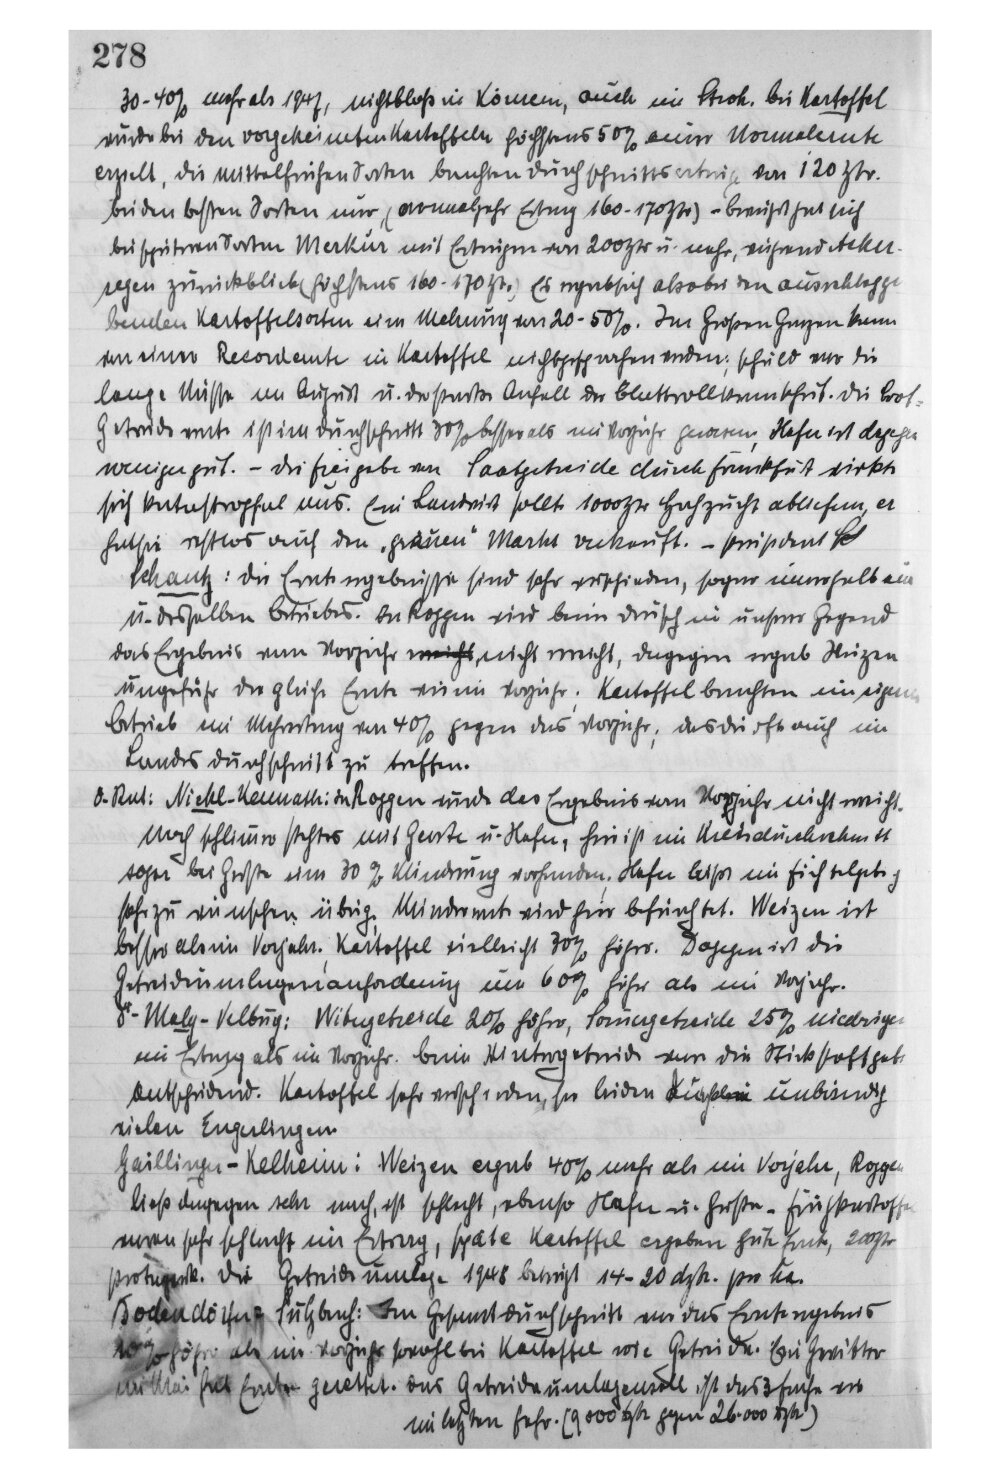 278
30-40% mehr als 1947, nicht bloß in Körnern, auch in Stroh. bei Kartoffel
wurde bei den vorgekeimten Kartoffeln höchstens 50% einer Normalernte
erzielt, die mittelfrühen Sorten brachten Durchschnittserträge von 120 Ztr.
bei den besten Sorten nur, (Normaljahr Ertrag 160-170 Ztr) - bewährt hat sich
bei späteren Sorten Merkur mit Erträgen von 200 Ztr u. mehr, während Acker-
segen zurückblieb (höchstens 160-170 Ztr.) Es ergab sich also bei den ausschlagge
benden Kartoffelsorten ein Mehrung von 20-50%. Im Großen Ganzen kann
von einer Recordernte in Kartoffel nicht gesprochen werden; schuld war die
lange Nässe im August u. der starke Anfall der Blattrollkrankheit. Die Brot-
Getreideernte ist im Durchschnitt 30% besser als im Vorjahr gewesen, Hafer ist dagegen
weniger gut. - die Freigabe von Saatgetreide durch Frankfurt wirkte
sich katastrophal aus. Ein Landwirt sollte 1000 Ztr Hochzucht abliefern, er
hat sie restlos auf den "grauen" Markt verkauft. - Präsident
Schantz: die Ernteergebnisse sind sehr verschieden, sogar innerhalb ein
u. desselben Betriebes. Bei Roggen wird beim Drusch in unserer Gegend
das Ergebnis vom Vorjahr nicht erreicht, dagegen ergab Weizen
ungefähr die gleiche Ernte wie im Vorjahr; Kartoffel brachten im eigenen
Betrieb ein Mehrertrag von 40% gegen das Vorjahr; das dürfte auch im
Landesdurchschnitt zu treffen.
Nickl-Kemnath: In Roggen wurde das Ergebnis vom Vorjahr nicht erreicht.
Noch schlimmer steht es mit Gerste u. Hafer, hier ist im Kreisdurchschnitt
sogar bei Gerste eine 30% Minderung vorhanden. Hafer läßt im
sehr zu wünschen übrig, Minderernte wird hier befürchtet. Weizen ist
besser als im Vorjahr. Kartoffel vielleicht 30% höher. Dagegen ist die
Getreideumlagenanforderung um 60% höher als im Vorjahr.
Dr. Maly-Velburg: Wintergetreide 20% höher, Sommergetreide 25% niedriger
im Ertrag als im Vorjahr. beim Wintergetreide war die Stickstoffgabe
entscheidend. Kartoffel sehr verschieden, sie leiden unbändig
vielen Engerlingen
Gaillinger-Kelheim: Weizen ergab 40% mehr als im Vorjahr, Roggen
ließ dagegen sehr nach, ist schlecht, ebenso Hafer u. Gerste. Frühkartoffel
waren sehr schlecht im Ertrag, späte Kartoffel ergaben gute Ernte, 200 Ztr
pro Tagwerk. Die Getreideumlage 1948 beträgt 14-20 dztr. pro ha.
Bodendörfer-Sulzbach: Im Gesamtdurchschnitt war das Ernteergebnis
10% höher als im Vorjahr sowohl bei Kartoffel wie Getreide. Ein Gewitter
im Mai hat Ernte gerettet. das Getreideumlagensoll ist das 3fache wie
im letzten Jahr. (9000 dztr gegen 26.000 dztr)